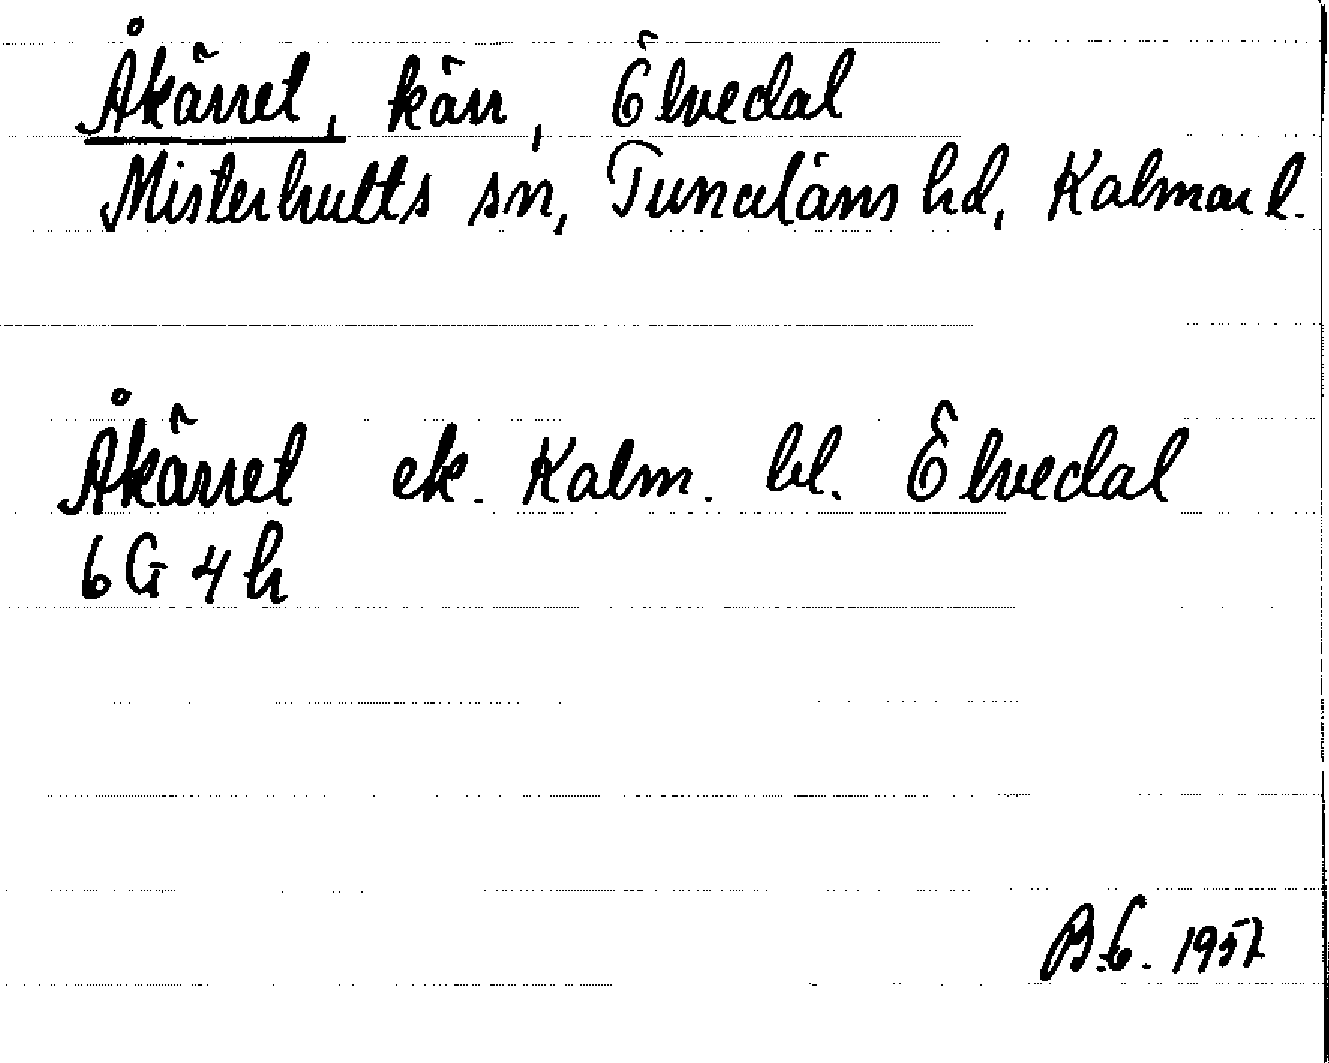 Åkärret, kärr, Ölvedal
Misterhults sn, Tunaläns hd, Kalmar l.
Åkärret ek. Kalm. bl. Ölvedal
6 G 4 h
B.Ö. 1957